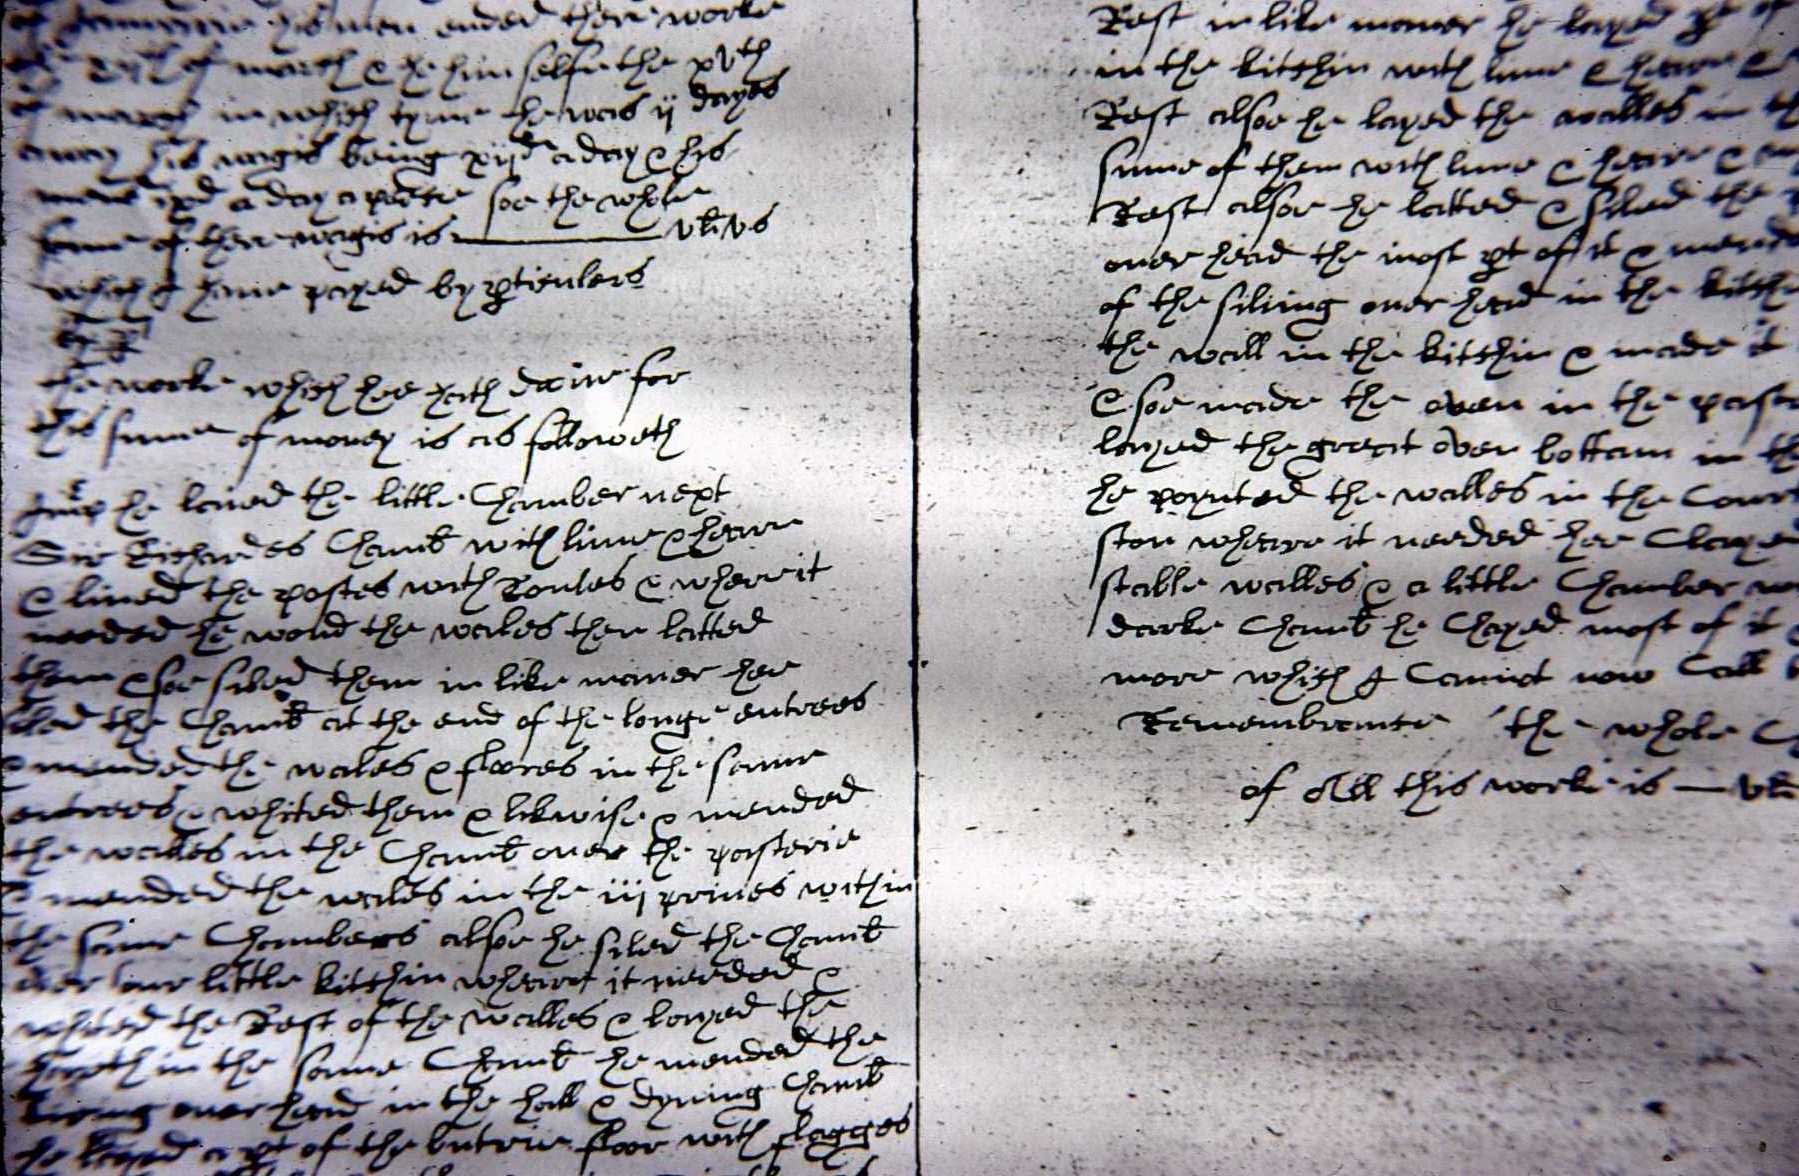 his men ended there worke
of march & he him selfe the xvth
of march in which tyme he was ij dayes
away his wagis being xijd a day & his
mens ixd a day a peece soe the whole
sume of there wagis is vli vs
which I have payed by perticulers
the worke which hee hath doune for
this sume of money is as followeth
he laied the little Chamber next
Sir Richardes Chamb with lime & heare
& lined the postes with Roules & where it
needed he wond the wales then latted
them & soe siled them in like maner hee
siled the Chamb at the end of the longe entrees
& mended the wales & floores in the same
entrees & whited them & likwise & mended
the walles in the Chamb over the pasterie
& mended the wales in the iij prives within
the same Chambers alsoe he siled the Chamb
over our little kitchin wheare it needed &
whited the Rest of the walles & layed the
harth in the same Chamb he mended the
over head in the hall & dyning Chamb
he layed a pt of the butrie floor with flagges
Rest in like maner he layed pt of
in the kitchin with lime & heare &
Rest alsoe he layed the walles in th
sume of them with lime & heare &
Rest alsoe he latted & siled the
over head the most pt of it & mend
of the siling over head in the kitch
the wall in the kitchin & made it
& soe made the oven in the past
layed the great oven bottam in th
he poynted the walles in the Cour
ston wheare it needed hee Claye
stable walles & a little Chamber
darke Chamb he Clayed most of it
more which I Cannot now Call
Remembrance the whole
of All this worke is vli